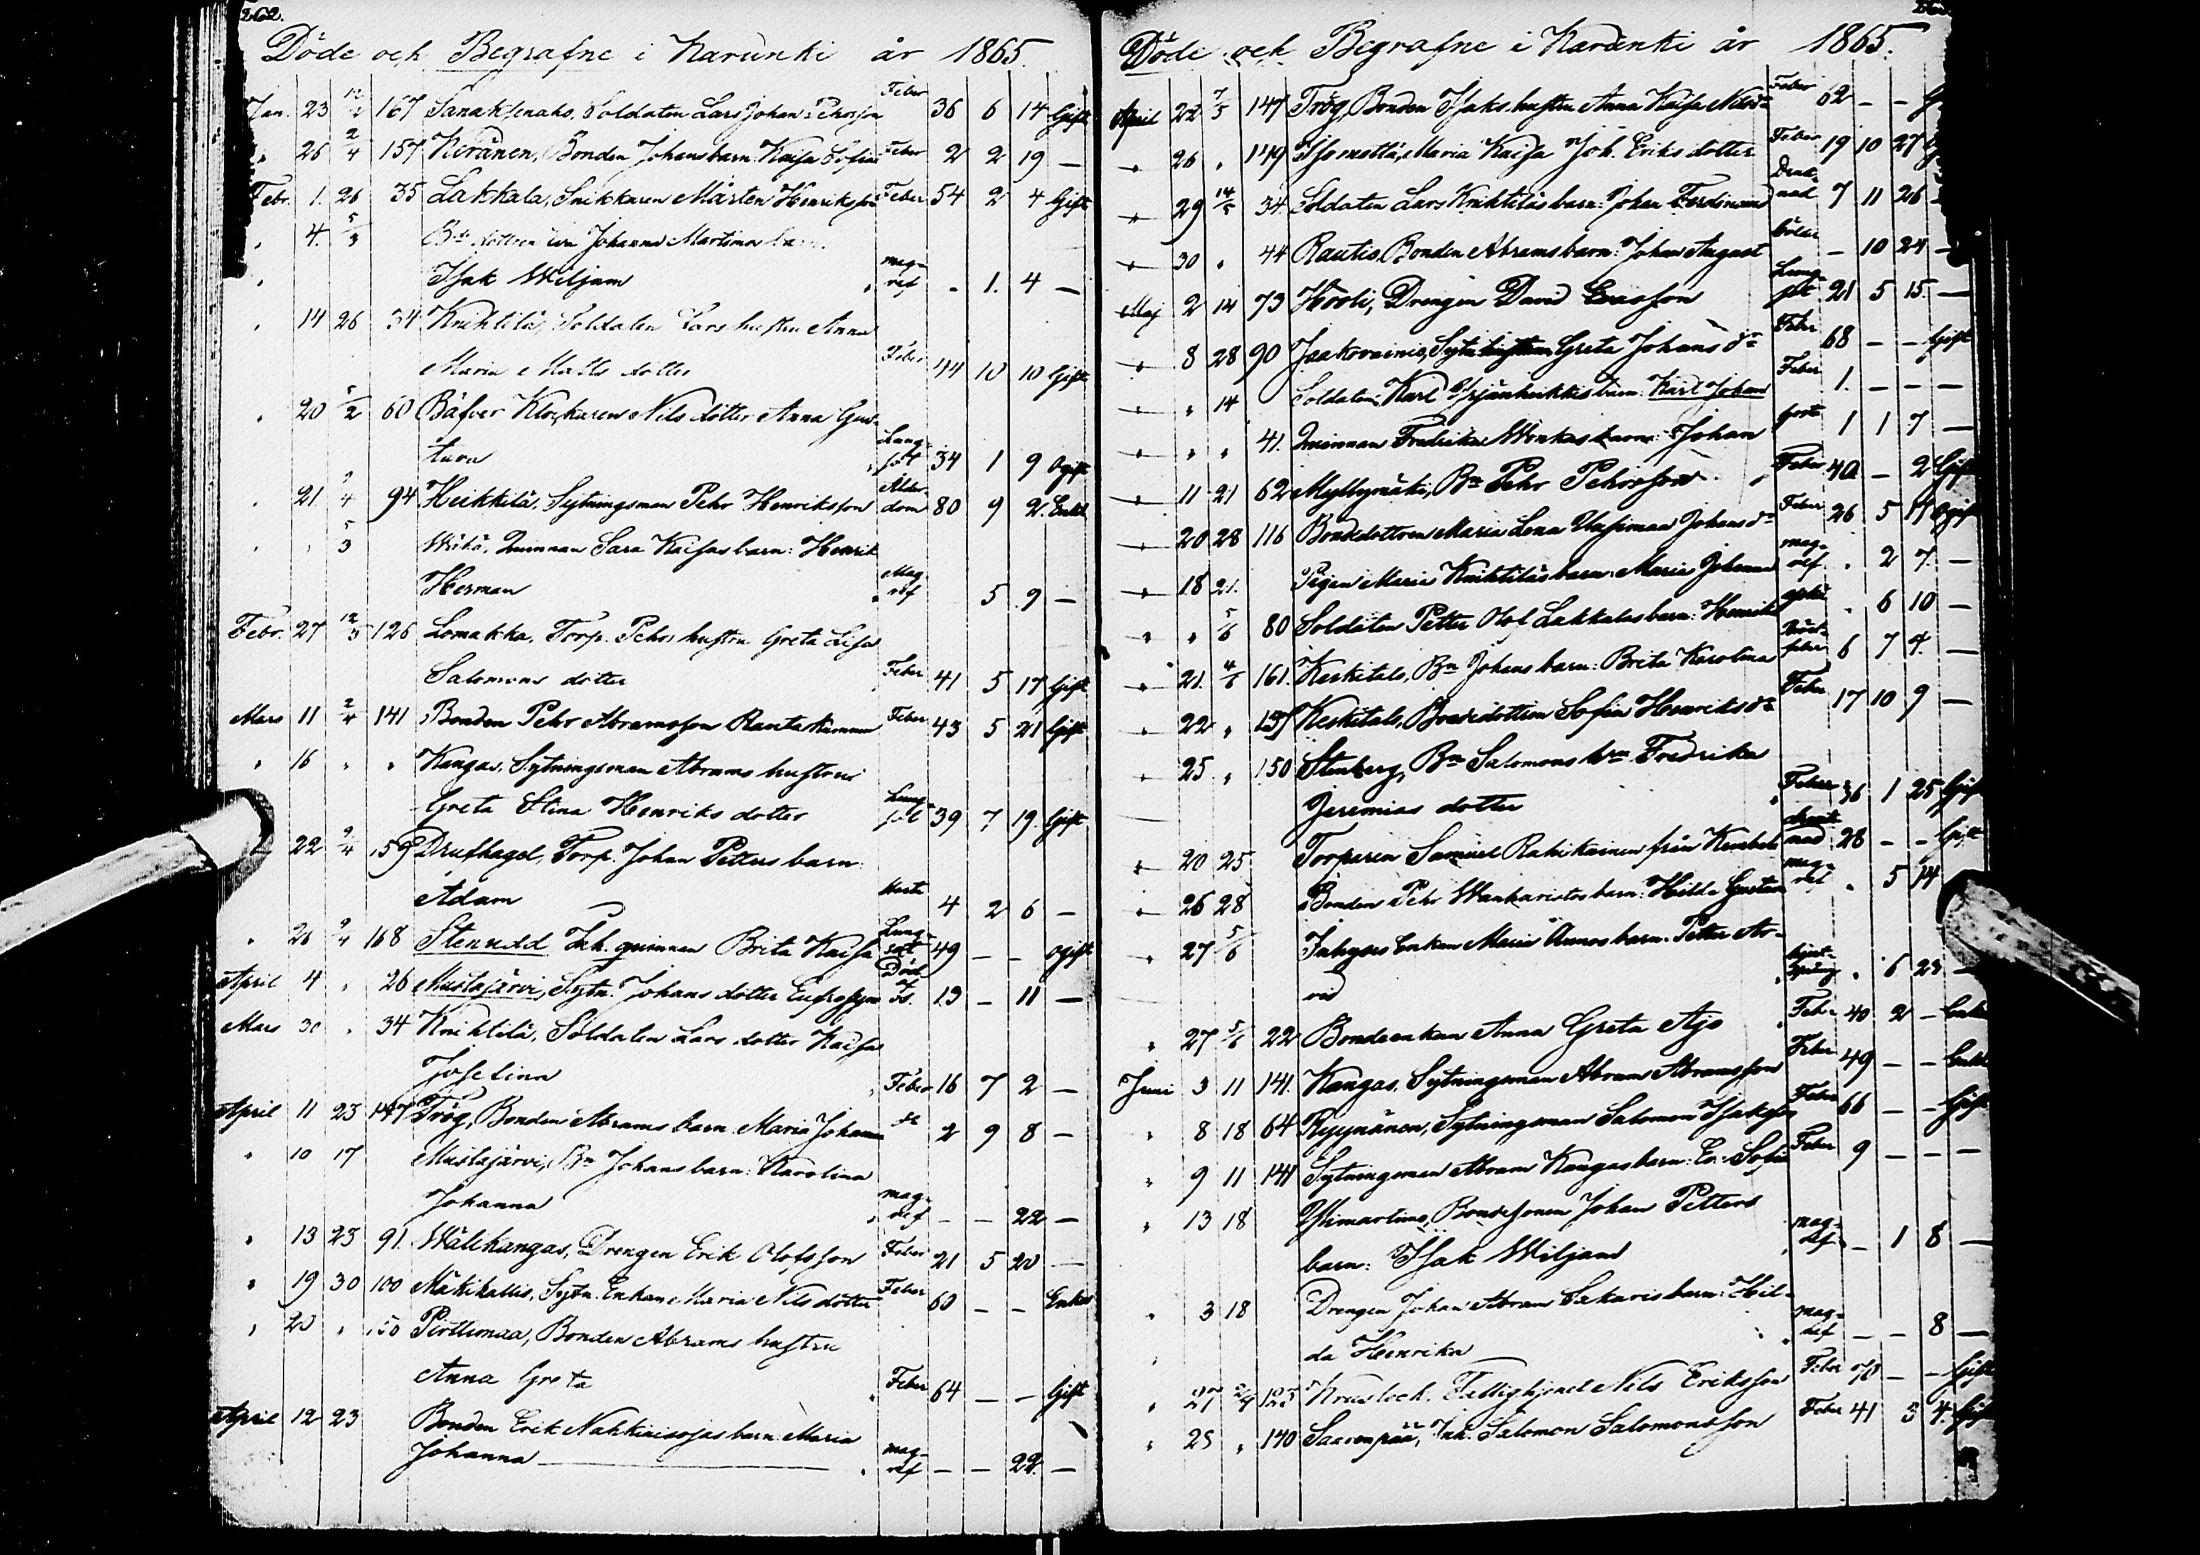 262.
Döde och Begrafne i Karunki år 1865.
Jan. 23 12/2 167 Sanaksenaho, Soldaten Lars Johan Pehrsson Feber 36 6 14 Gift
" 26 2/4 157 Keränen, Bonden Johans barn: Kaisa Sofia Feber 2 2 19 —
Febr. 1. 26 35 Lakkala, Snikkaren Mårten Henriksson Feber 54 2 4 Gift
" 4. 5/3 Bde dottren Johanna Martimo barn:
Isak Wiljam mag-ref - 1. 4 —
" 14 26 34 Knihtilä, Soldaten Lars hustru Anna
Maria Matts dotter Feber 44 10 10 Gift
" 20 5/2 60 Bäfver Klockaren Nils dotter Anna Gus-
tava Lung-sot 34 1 9 Ogift
" 21 2/4 94 Heikkilä, Sytningsman Pehr Henriksson Ålder-dom 80 9 2 Enkl.
" " 5/3 Qvinnan Sara Kaisas barn: Henrik
Herman Mag-ref 5 9 —
Febr. 27 12/3 126 Lomakka, Torp. Pehrs hustru Greta Lisa
Salomons dotter Feber 41 5 17 Gift
Mars 11 2/4 141 Bonden Pehr Abramsson Rautakumm Feber 43 5 21 Gift
" 16 " " Kangas, Sytningsman Abrams hustru
Greta Stina Henriks dotter Lung-sot 39 7 19 Gift
22 2/4 159 Drufhagel, Torp. Johan Petters barn:
Adam 4 2 6 —
" 26 2/4 168 Stenudd Inh. qvinnan Brita Kaisa Lung-sot 49 — — ogift
April 4 " 26 Mustajärvi, Sytn. Johans dotter Eufrosyne 13 — 11 —
Mars 30 " 34 Knihtilä, Soldaten Lars dotter Kaisa
Josefina Feber 16 7 2 —
April 11 23 147 Trög, Bonden Abrams barn Maria Johanna 2 9 8 —
" 10 17 Mustajärvi, Bn Johans barn: Karolina
Johanna mag-ref — — 22 —
" 13 23 91. Wälikangas, Drengen Erik Olofsson Feber 21 5 20 —
" 19 30 100 Mäkikallis, Sytn. Enkan Maria Nils dotter Feber 60 — — Enka
" 20 " 150 Pirttimaa, Bonden Abrams hustru
Anna Greta Feber 64 — — Gift
April 12 23 Bonden Erik Nahkiaisojas barn Maria
Johanna mag-ref — — 22 —
Döde och Begrafne i Karunki år 1865.
April 22 7/5 147 Trög, Bonden Isaks hustru Anna Kaisa Nilsdr Feber 62 — —
" 26 " 149 Isometta, Maria Kaisa Joh. Eriks dotter Feber 19 10 27
" 29 14/5 34. Soldaten Lars Knihtiläs barn: Johan Ferdinand Drunk-nad 7 11 26 —
" 30 " 44 Rautio, Bonden Abrams barn: Johan August — 10 24 —
Maj 2 14 73 Hooli, Drengen David Ersson Lung-sot 21 5 15 —
" 8 28 90 Jaakovainio, Sytn hustrun Greta Johans dr Feber 68 — — Gift
" " 14 Soldaten Karl Yrjänheikkis barn: Karl Johan Feber 1. — — —
" " " 41. Qvinnan Fredrika Wonkas barn: Johan 1 1 7 —
" 11 21 62 Myllymäki, Bn Pehr Pehrsson Feber 40 — 2 Gift
" 20 28 116 Bondedottren Maria Lena Johans dr Feber 26 5 14 Ogift
" 18 21. Pigan Maria Knihtiläs barn: Maria Johanna mag-ref " 2 7 —
" " 5/6 80 Soldaten Petter Olof Lakkalas barn: Henrik " 6 10 —
" 21. 4/6 161. Keskitalo, Bn Johans barn: Brita Karolina 6 7 4. —
" 22 " 157 Keskitalo, Bondedottren Sofia Henriks dr Feber 17 10 9 —
" 25 " 150 Stenberg, Bn Salomons hu Fredrika
Jeremias dotter Feber 36 1 25 Gift
" 20 25 Torparen Samuel Rahikainen från Kembele drunk-nad 28 — — Gift
" 26 28 Bonden Pehr Wanharistos barn: Hilda Gustava mag-ref " 5 14
" 27 5/6 Enkan Maria Aunos barn: Petter Ar-
vid " 6 23 —
" 27 5/6 22 Bondeenkan Anna Greta Ajo Feber 40 2 — Enka
Juni 3 11 141. Kangas, Sytningsman Abram Abramsson Feber 49 — — Enkl.
" 8 18 64 Ryynänen, Sytningsman Salomon Isaksson Feber 66 — — Gift
" 9 11 141 Sytningsman Abram Kangas barn: Ev. Sofia Feber 9 — — —
" 13 18 Ylimartimo, Bondesonen Johan Petters
barn: Isak Wiljam mag-ref — 1 8 —
" 3 18 Drengen Johan Abram Sakaris barn: Hil-
da Henrika mag-ref — — 8 —
" 27 2/7 123 Fattighjonet Nils Eriksson Feber 70 — — Gift
" 25 " 140 Saarenpää, Inh. Salomon Salomonsson Feber 41 3 4. Gift